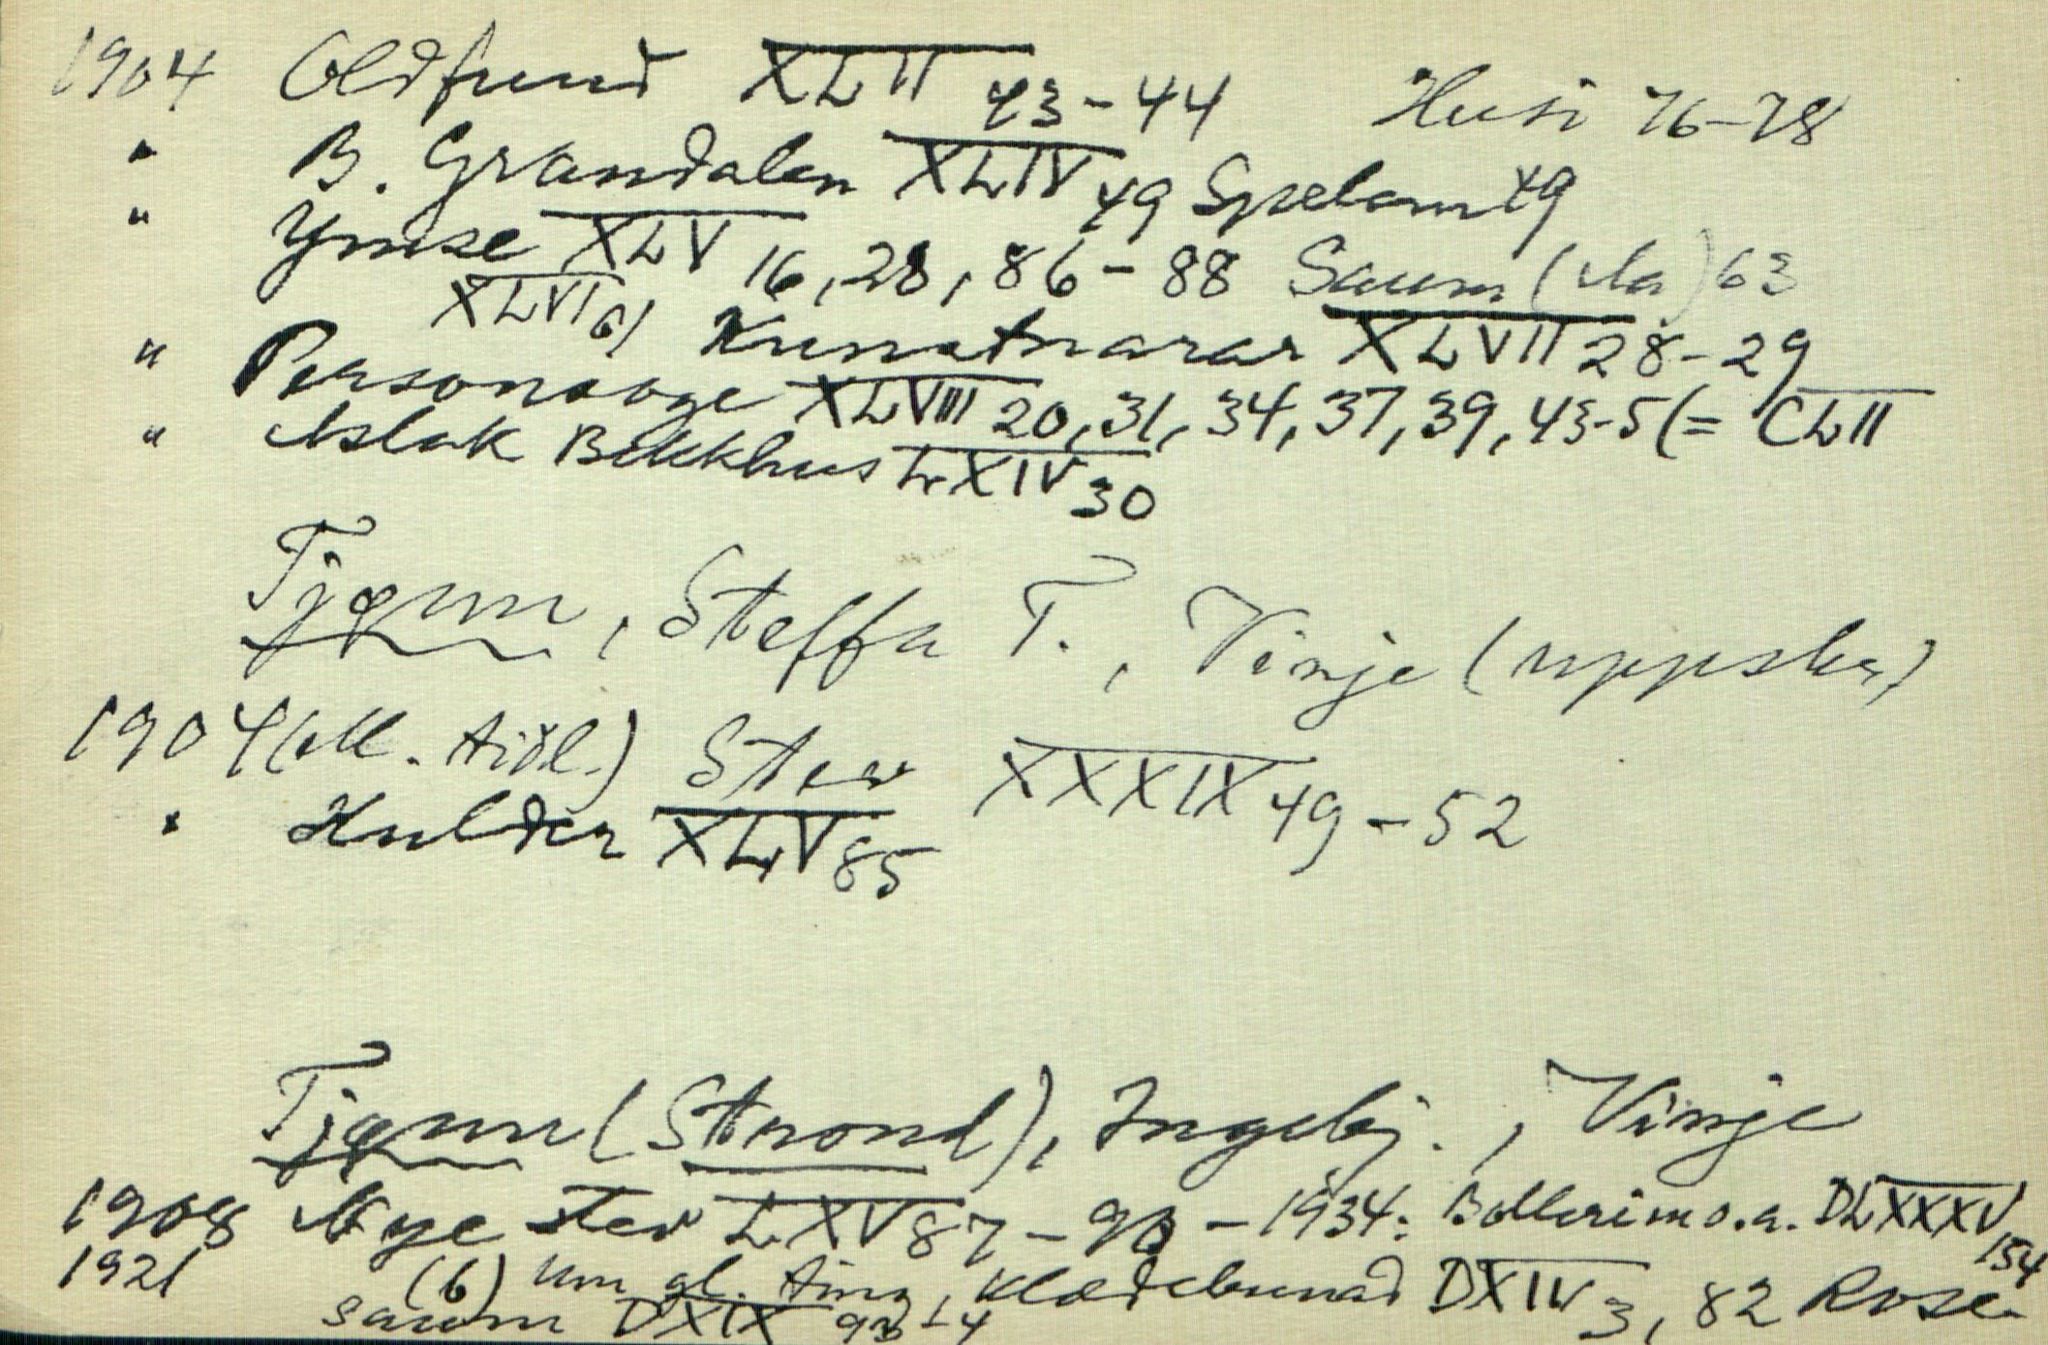 1904 Oldfund XLII 43-44 Husi 76-78
" B. Grandalen XLIV 49 Spelem 49
" Ymse XLV 16, 28, 86-88 Saum ( ) 63
XLVI 61 Kunstnarar XLVII 28-29
" Personsoge XLVIII 20, 31, 34, 37, 39, 43-5 (= CLII
" Aslak Bekkhus LXIV 30
Tjønn, Steffa T., Vinje (uppsk.)
1904 ( . tidl.) Stev XXXIX 49-52
" Hulder XLV 85
Tjønn (Strond), Ingebj., Vinje
1908 Nye stev LXV 87-90 - 1934: Bollerim o.a. DLXXXV 154
1921 (6) Um gl. ting, Klædebunad DXIV 3, 82 Rose-
saum DXIX 93-4